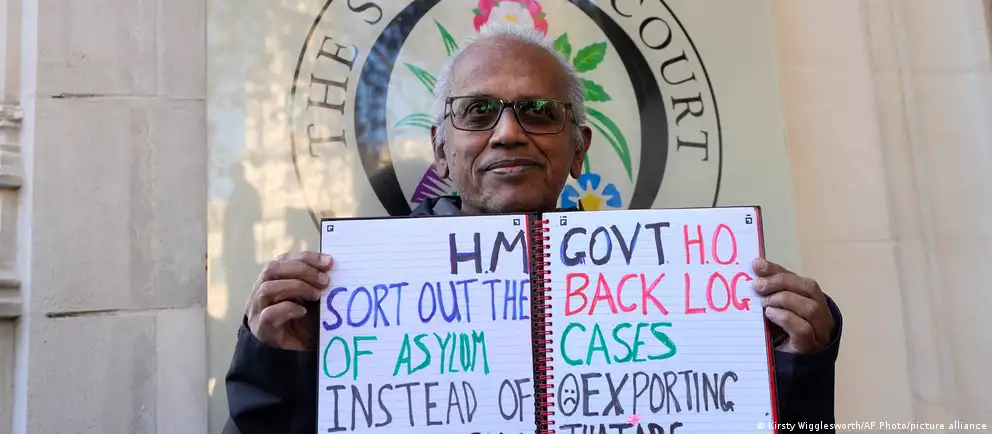 THE SUPREME COURT
H.M GOVT H.O.
SORT OUT THE BACK LOG
OF ASYLUM CASES
INSTEAD OF EXPORTING
THAT ARE
© Kirsty Wigglesworth/AP Photo/picture alliance